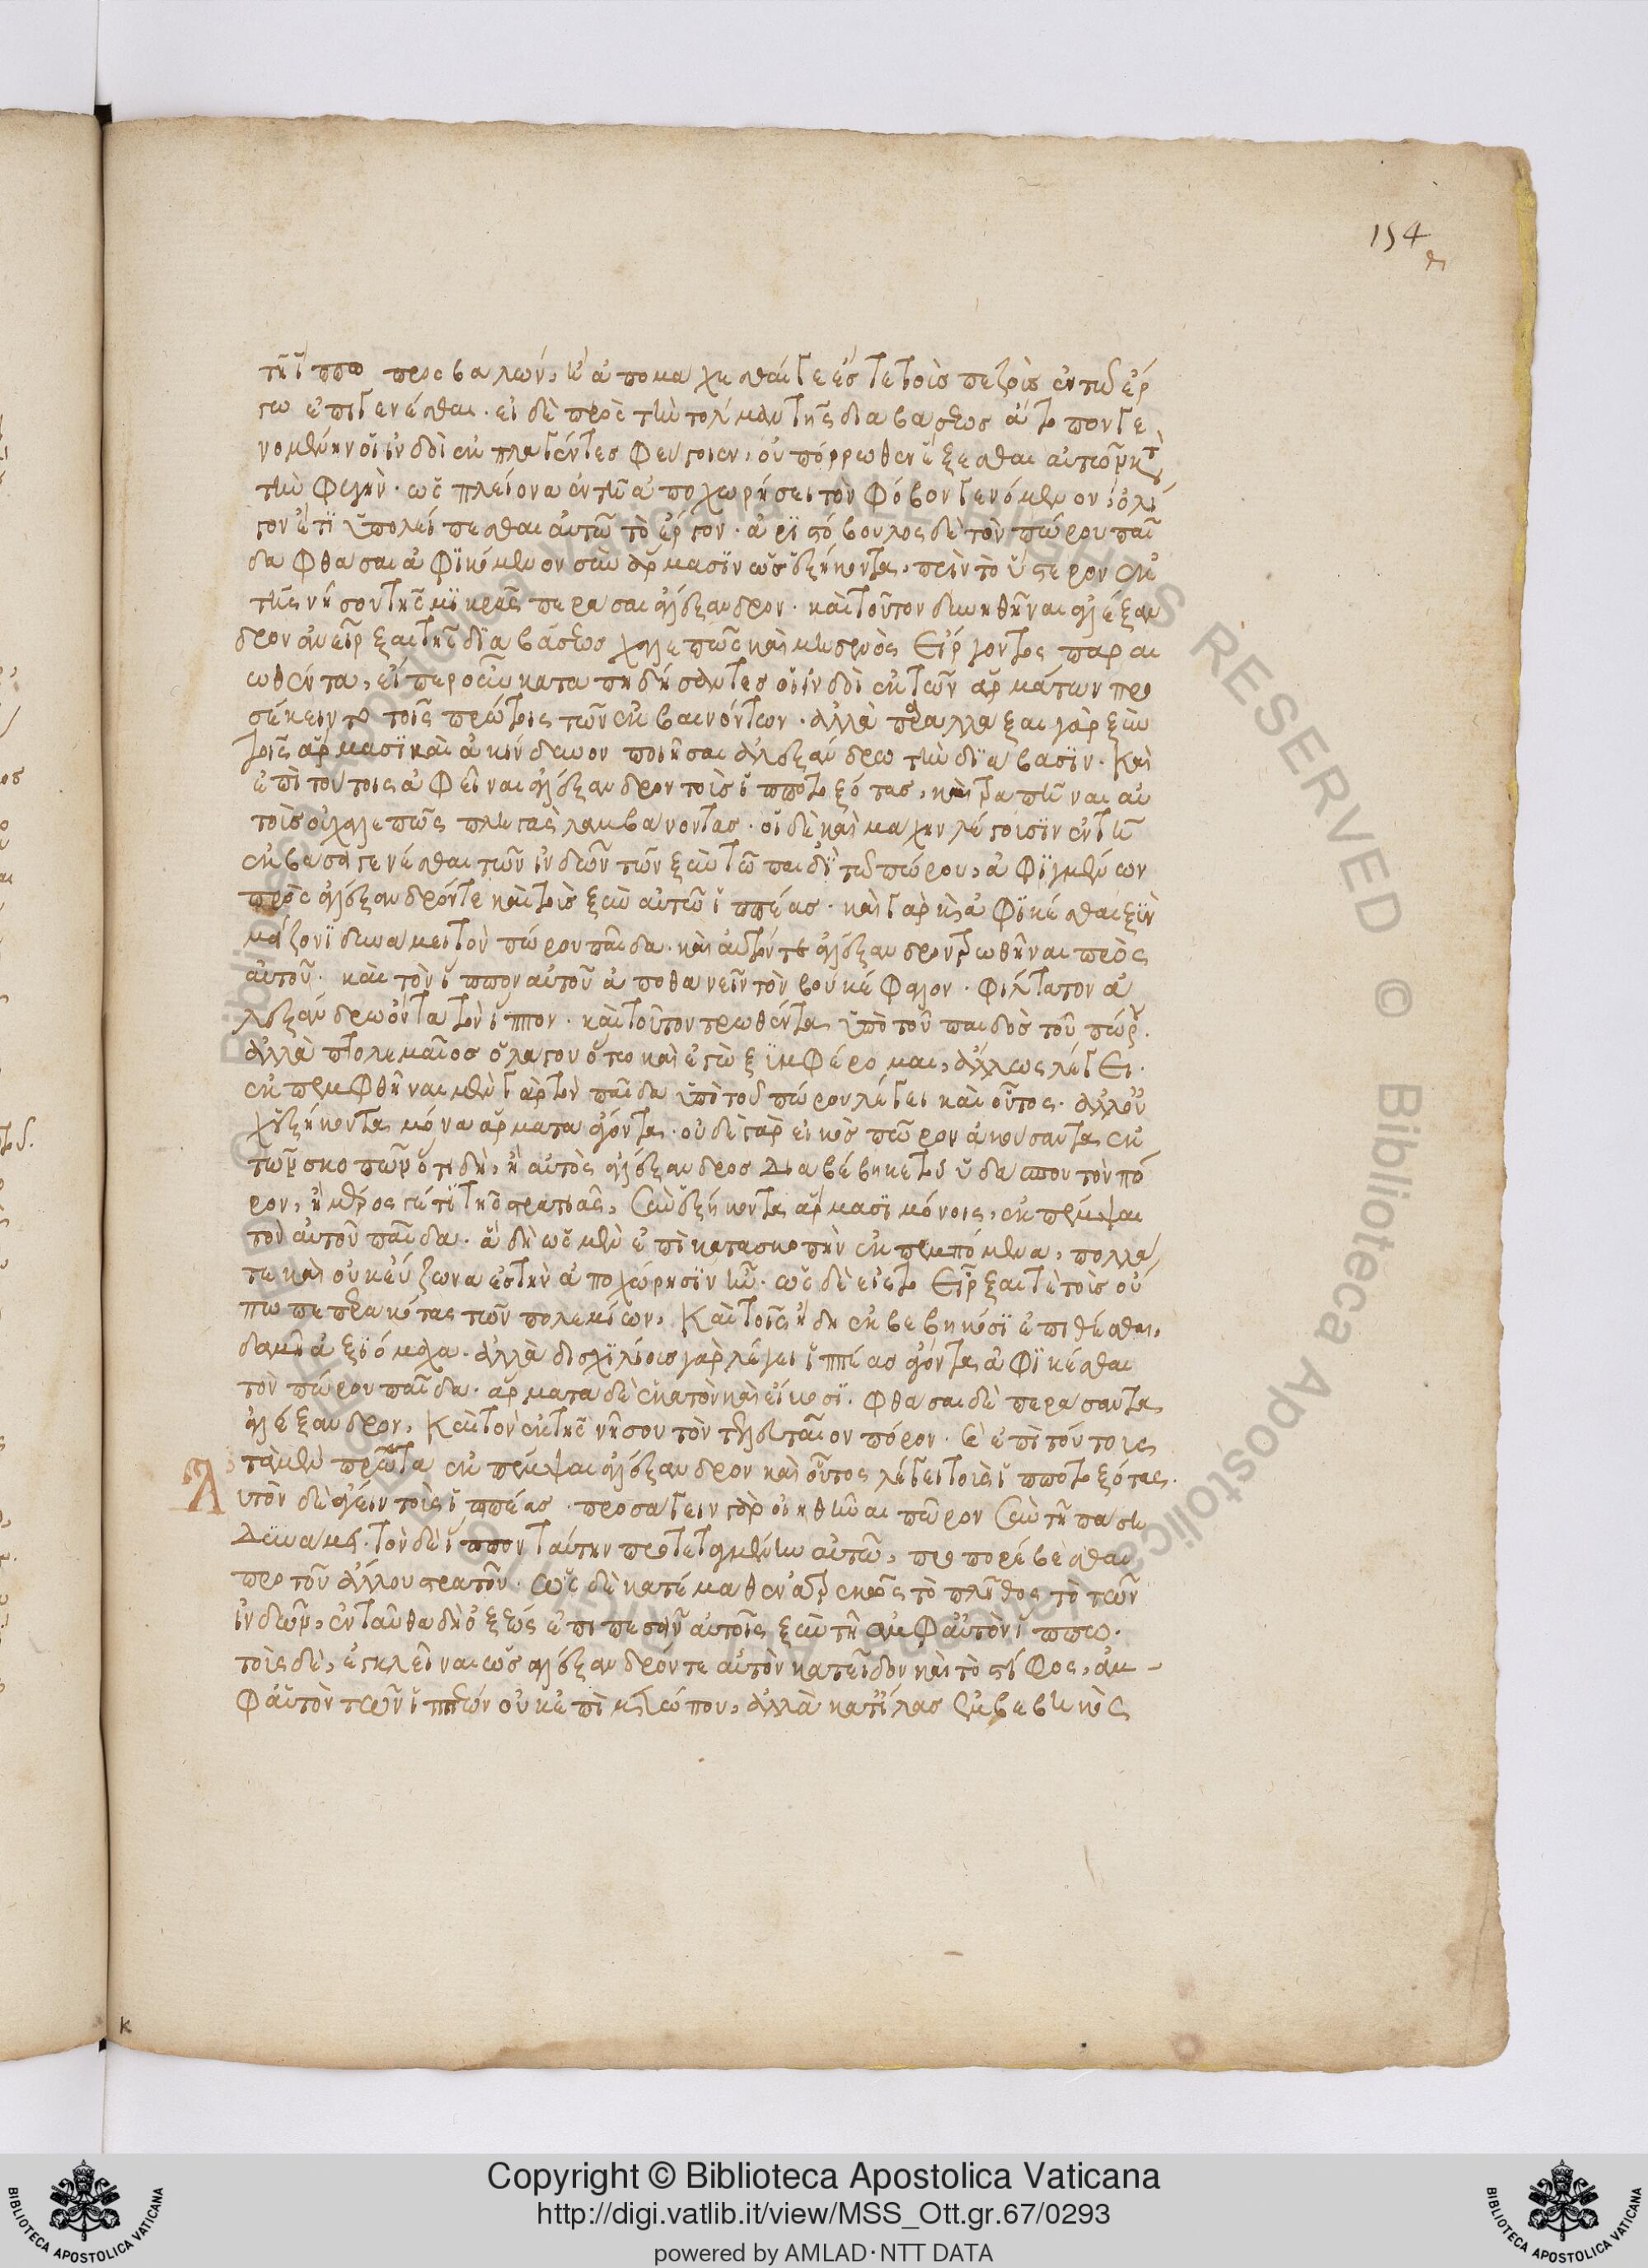 154
τῆ ἵππω προσβαλών, ἢ ἀπομαχήσασθαί γε ἔστε τοὺς πεζοὺς ἐν τῶ ἔρ
γω ἐπιγενέσθαι. εἰ δὲ πρὸς τὴν τόλμαν τῆς διαβάσεως ἄτοπον γε
νομένην οἱ ἰνδοὶ ἐκπλαγέντες φεύγοιεν, οὐ πόρρωθεν ἕξεσθαι αὐτῶν κατὰ
τὴν φυγήν. ὡς πλείονα ἐν τῆ ἀποχωρήσει τὸν φόβον γενόμενον, ὀλί
γον ἔτι ὑπολείπεσθαι αὐτῶ τὸ ἔργον. ἀριστόβουλος δὲ τὸν πώρου παῖ
δα φθάσαι ἀφικόμενον σὺν ἅρμασιν ὡς ἑξήκοντα, πρὶν τὸ ὕστερον ἐκ
τῆς νήσου τῆς μικρᾶς περάσαι ἀλέξανδρον. καὶ τοῦτον δυνηθῆναι ἀλέξαν
δρον ἂν εἶρξαι τῆς διαβάσεως χαλεπῶς καὶ μηδενὸς εἴργοντος παραι
ωθέντα, εἴπερ οὖν καταπηδήσαντες οἱ ἰνδοὶ ἐκ τῶν ἁρμάτων προ
σέκειντο τοῖς πρώτοις τῶν ἐκβαινόντων. ἀλλὰ παραλλάξαι γὰρ ξὺν
τοῖς ἅρμασι καὶ ἀκίνδυνον ποιῆσαι ἀλεξάνδρω τὴν διάβασιν. καὶ
ἐπὶ τούτοις ἀφεῖναι ἀλέξανδρον τοὺς ἱπποτοξότας, καὶ τραπῆναι αὐ
τοὺς οὐ χαλεπῶς πληγὰς λαμβάνοντας. οἱ δὲ καὶ μάχην λέγουσιν ἐν τῆ
ἐκβάσει γενέσθαι τῶν ἰνδῶν τῶν ξὺν τῶ παιδὶ τῶ πώρου, ἀφιγμένων
πρὸς ἀλέξανδρόν τε καὶ τοὺς ξὺν αὐτῶ ἱππέας. καὶ γὰρ καὶ ἀφικέσθαι ξὺν
μείζονι δυνάμει τὸν πώρου παῖδα. καὶ αὐτόν τε ἀλέξανδρον τρωθῆναι πρὸς
αὐτοῦ. καὶ τὸν ἵππον αὐτοῦ ἀποθανεῖν τὸν βουκέφαλον. φίλτατον ἀ
λεξάνδρω ὄντα τὸν ἵππον. καὶ τοῦτον τρωθέντα ὑπὸ τοῦ παιδὸς τοῦ πώρου.
ἀλλὰ πτολεμαῖος ὁ λάγου ὅτω καὶ ἐγὼ ξυμφέρομαι, ἄλλως λέγει.
ἐκπεμφθῆναι μὲν γὰρ τὸν παῖδα ὑπὸ τοῦ πώρου λέγει καὶ οὗτος. ἀλλ' οὐ
χ' ἑξήκοντα μόνα ἅρματα ἄγοντα. οὐδὲ γὰρ εἰκὸς πῶρον ἀκούσαντα ἐκ
τῶν σκοπῶν ὅτι δὴ, ἢ αὐτὸς ἀλέξανδρος διαβέβηκε τοῦ ὑδάσπου τὸν πό
ρον, ἢ μέρος γέ τι τῆς στρατιᾶς, ξὺν ἑξήκοντα ἅρμασι μόνοις, ἐκπέμψαι
τὸν αὑτοῦ παῖδα. ἃ δὴ ὡς μὲν ἐπὶ κατασκοπὴν ἐκπεμπόμενα, πολλά
τε καὶ οὐκ εὔζωνα ἐς τὴν ἀποχώρησιν ἦν. ὡς δὲ εἰς τὸ εἶρξαί τε τοὺς οὔ
πω πεπερακότας τῶν πολεμίων, καὶ τοῖς ἤδη ἐκβεβηκόσι ἐπιθέσθαι,
οὐδαμῆ ἀξιόμαχα. ἀλλὰ δισχιλίους γὰρ λέγει ἱππέας ἄγοντα ἀφικέσθαι
τὸν πώρου παῖδα. ἅρματα δὲ ἑκατὸν καὶ εἴκοσι. φθάσαι δὲ περάσαντα
ἀλέξανδρον, καὶ τὸν ἐκ τῆς νήσου τὸν τελευταῖον πόρον. καὶ ἐπὶ τούτους
τὰ μὲν πρῶτα ἐκπέμψαι ἀλέξανδρον καὶ οὗτος λέγει τοὺς ἱπποτοξότας.
Αὐτὸν δὲ ἄγειν τοὺς ἱππέας. προσάγειν γὰρ οἰηθῆναι πῶρον ξὺν τῆ πάση
δυνάμει. τὴν δὲ ἵππον ταύτην προτεταγμένην αὐτῶ, προπορεύεσθαι
πρὸ τοῦ ἄλλου στρατοῦ. ὡς δὲ κατέμαθεν ἀτρεκῶς τὸ πλῆθος τὸ τῶν
ἰνδῶν, ἐνταῦθα δὴ ὀξέως ἐπιπεσεῖν αὐτοῖς ξὺν τῆ ἀμφ' αὐτὸν ἵππω.
τοὺς δὲ, ἐγκλῖναι ὡς ἀλέξανδρόν τε αὐτὸν κατεῖδον καὶ τὸ στίφος, ἀμ-
φ' αὐτὸν τῶν ἱππέων οὐκ ἐπὶ μετώπου, ἀλλὰ κατ' ἴλας ἐμβεβληκὸς
Copyright © Biblioteca Apostolica Vaticana
http://digi.vatlib.it/view/MSS_Ott.gr.67/0293
powered by AMLAD·NTT DATA